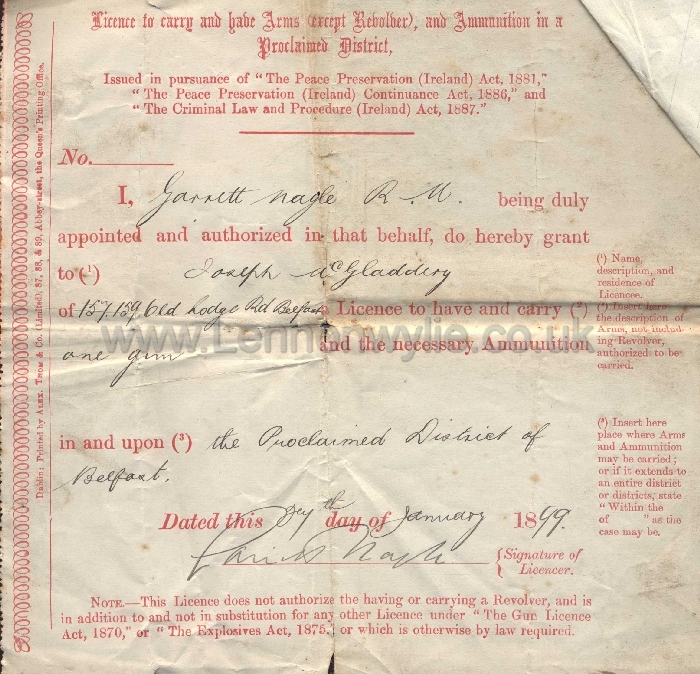 Licence to carry and have Arms (except Revolver), and Ammunition in a
Proclaimed District,
Issued in pursuance of "The Peace Preservation (Ireland) Act, 1881,"
"The Peace Preservation (Ireland) Continuance Act, 1886," and
"The Criminal Law and Procedure (Ireland) Act, 1887."
No.
I, Garrett Nagle R. M. being duly
appointed and authorized in that behalf, do hereby grant
to (¹) Joseph McGladdery
of 157, 159 Old Lodge Rd Belfast a Licence to have and carry (²)
one gun and the necessary Ammunition
in and upon (³) the Proclaimed District of
Belfast.
Dated this day of January 1899.
Garrett Nagle {Signature of
Licencer.
NOTE.—This Licence does not authorize the having or carrying a Revolver, and is
in addition to and not in substitution for any other Licence under "The Gun Licence
Act, 1870," or "The Explosives Act, 1875," or which is otherwise by law required.
(¹) Name,
description, and
residence of
Licencee.
(²) Insert here
the description of
Arms, not includ-
ing Revolver,
authorized to be
carried.
(³) Insert here
place where Arms
and Ammunition
may be carried;
or if it extends to
an entire district
or districts, state
"Within the
of " as the
case may be.
Dublin: Printed by ALEX. THOM & Co. (Limited), 87, 88, & 89, Abbey-street, the Queen's Printing Office.
www.Lennonwylie.co.uk